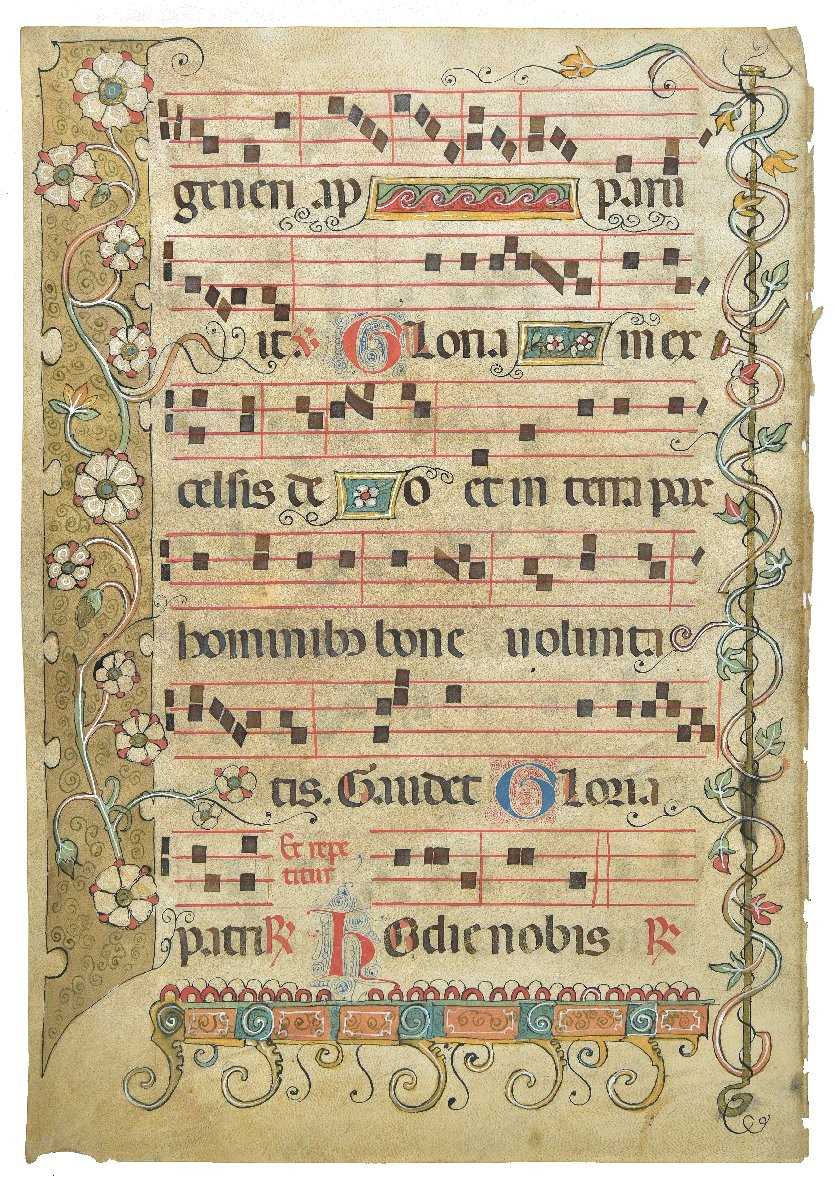 generi ap paru
it. ℣ Gloria in ex
celsis de o et in terra pax
hominibꝰ bone uolunta
tis. Gaudet Gloria
Et repe
titur
patri ℟ Hodie nobis ℟